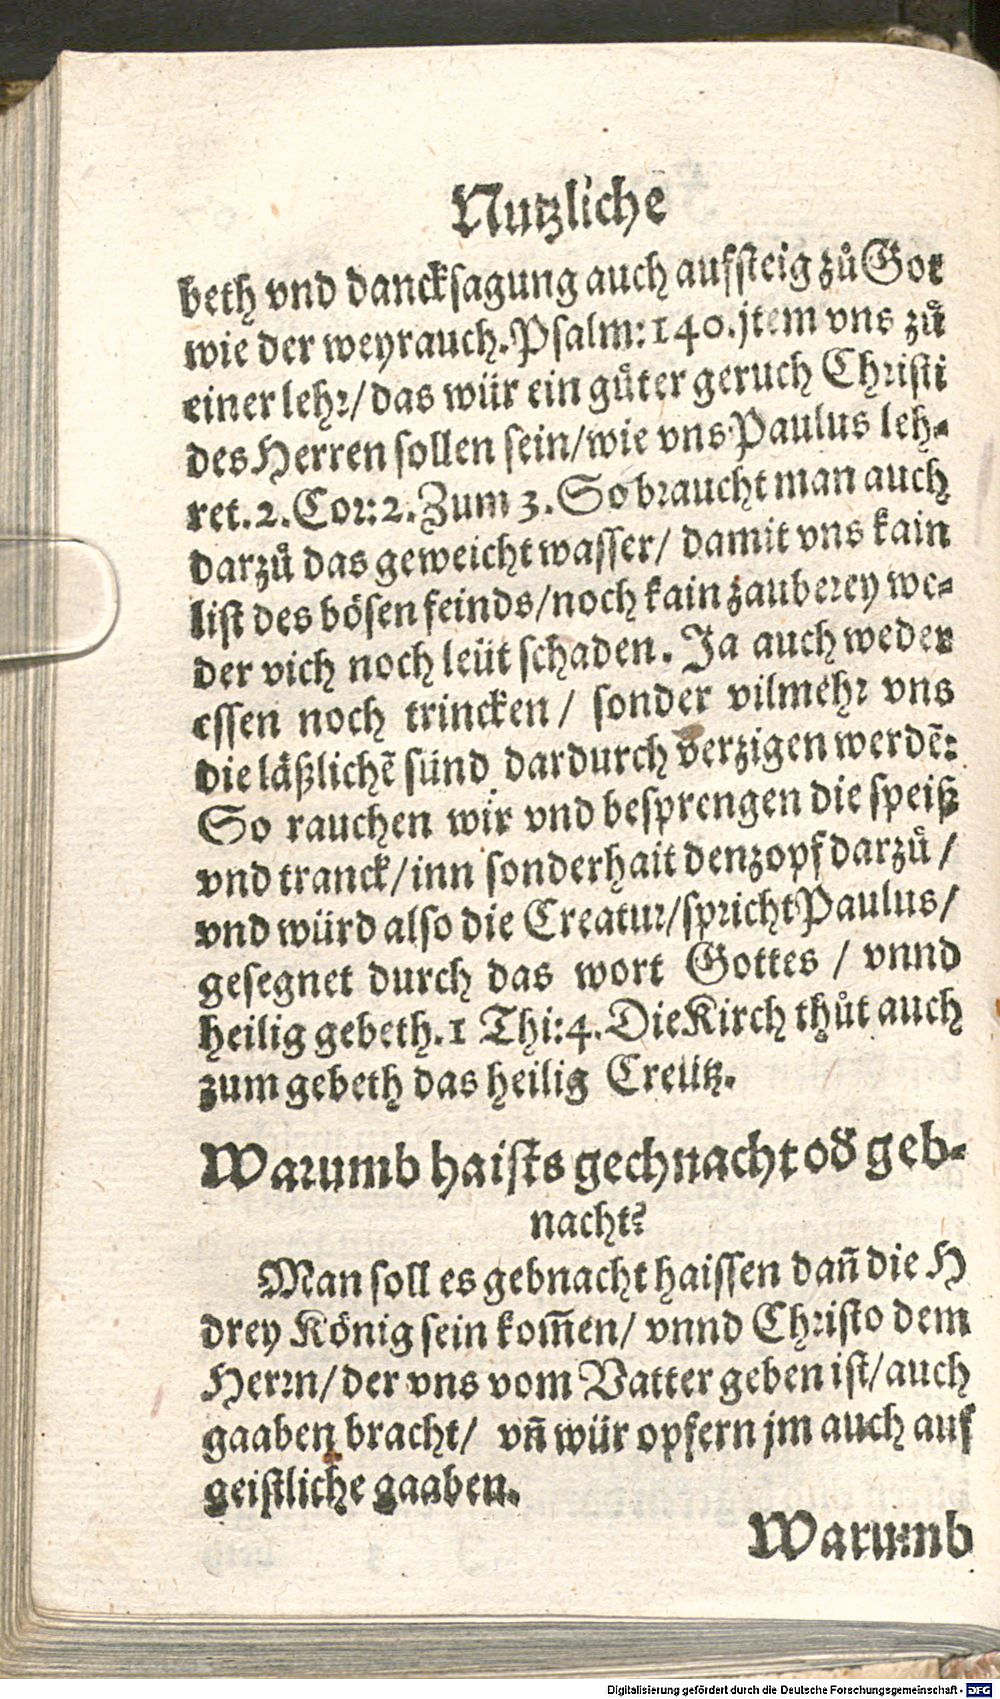 Nutzliche
beth vnd dancksagung auch aufsteig zů Got
wie der weyrauch. Psalm: 140. jtem vns zů
einer lehr/ das wür ein gůter geruch Christi
des Herren sollen sein/ wie vns Paulus leh-
ret. 2. Cor: 2. Zum 3. So braucht man auch
darzů das geweicht wasser/ damit vns kain
list des bösen feinds/ noch kain zauberey we-
der vich noch leüt schaden. Ja auch weder
essen noch trincken/ sonder vilmehr vns
die läßlichẽ sünd dardurch verzigen werdẽ:
So rauchen wir vnd besprengen die speiß
vnd tranck/ inn sonderhait den zopf darzů/
vnd würd also die Creatur/ spricht Paulus/
gesegnet durch das wort Gottes / vnnd
heilig gebeth. 1 Thi: 4. Die Kirch thůt auch
zum gebeth das heilig Creütz.
Warumb haists gechnacht oď geb-
nacht?
Man soll es gebnacht haissen dañ die H
drey König sein kom̃en/ vnnd Christo dem
Herrn/ der vns vom Vatter geben ist/ auch
gaaben bracht/ vñ wür opfern jm auch auf
geistliche gaaben.
Warumb
Digitalisierung gefördert durch die Deutsche Forschungsgemeinschaft - DFG